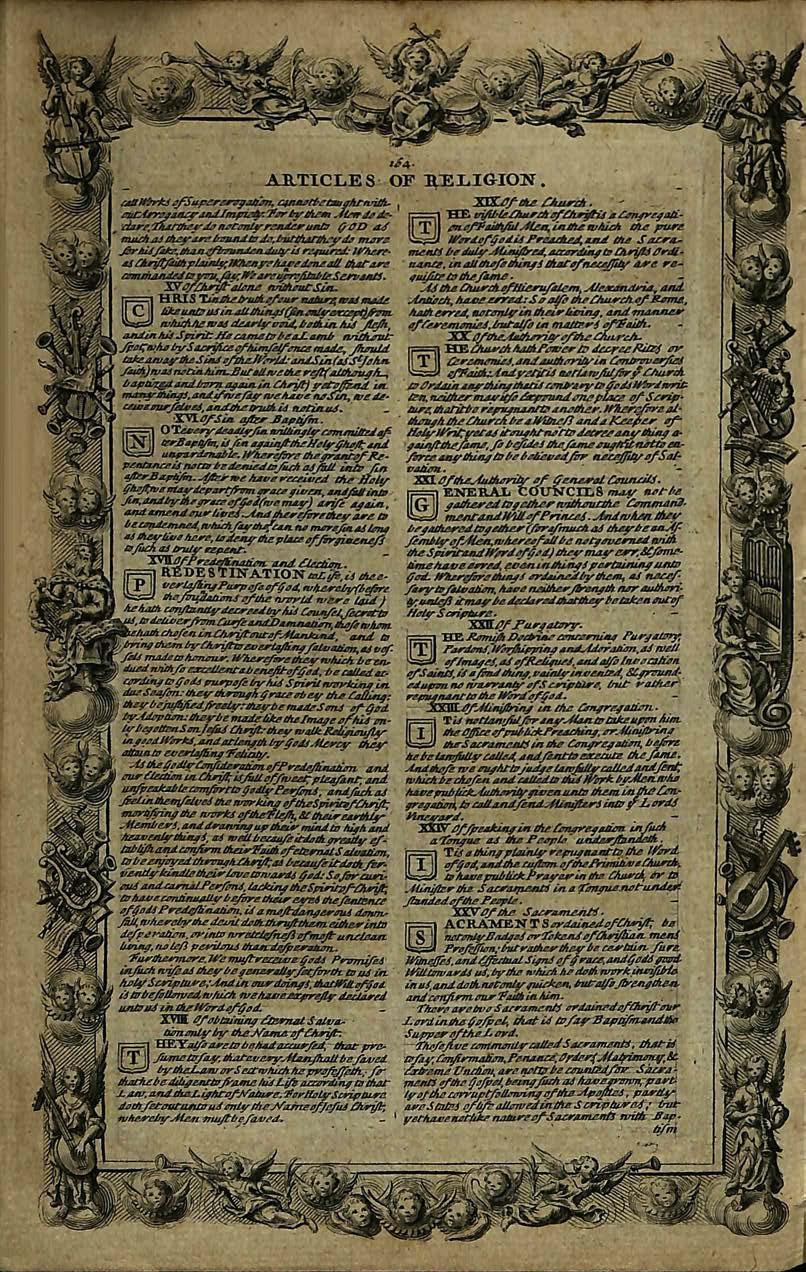 164.
ARTICLES OF RELIGION.
call Works of Supererogation, cannot be taught with-
out Arrogancy and Impiety. For by them Men do de-
clare, That they do not only render unto GOD as
much as they are bound to do, but that they do more
for his sake, than of bounden duty is required: Where-
as Christ saith plainly, When ye have done all that are
commanded to you, say, We are unprofitable Servants.
XV Of Christ alone without Sin.
CHRIST in the truth of our nature, was made
like unto us in all things (sin only except) from
which he was clearly void, both in his flesh,
and in his Spirit. He came to be a Lamb without
spot, who by Sacrifice of himself once made, should
take away the Sins of the World: and Sin (as St John
saith) was not in him. But all we the rest (although
baptized and born again in Christ) yet offend in
many things, and if we say we have no Sin, we de-
ceive our selves, and the truth is not in us.
XVI Of Sin after Baptism.
NOT every deadly sin willingly committed af-
ter Baptism, is sin against the Holy Ghost, and
unpardonable. Wherefore the grant of Re-
pentance is not to be denied to such as fall into sin
after Baptism. After we have received the Holy
Ghost, we may depart from grace given, and fall into
sin, and by the grace of God (we may) arise again,
and amend our lives. And therefore they are to
be condemned, which say they can no more sin as long
as they live here, to deny the place of forgiveness
to such as truly repent.
XVII Of Predestination and Election.
PREDESTINATION to Life, is the e-
verlasting Purpose of God, whereby (before
the foundations of the world were laid)
he hath constantly decreed by his Counsel, secret to
us, to deliver from Curse and Damnation, those whom
he hath chosen in Christ out of Mankind, and to
bring them by Christ to everlasting salvation, as ves-
sels made to honour. Wherefore they which be en-
dued with so excellent a benefit of God, be called ac-
cording to Gods purpose by his Spirit working in
due Season: they through Grace obey the Calling:
they be justified freely: they be made Sons of God
by Adoption: they be made like the Image of his on-
ly begotten Son Jesus Christ: they walk Religiously
in good Works, and at length by Gods Mercy they
attain to everlasting Felicity.
As the Godly Consideration of Predestination and
our Election in Christ, is full of sweet, pleasant, and
unspeakable comfort to Godly Persons, and such as
feel in themselves the working of the Spirit of Christ,
mortifying the works of the Flesh, & their earthly
Members, and drawing up their mind to high and
heavenly things, as well because it doth greatly es-
tablish and confirm their Faith of eternal Salvation,
to be enjoyed through Christ, as because it doth fer-
vently kindle their love towards God: So for curi-
ous and carnal Persons, lacking the Spirit of Christ,
to have continually before their eyes the sentence
of Gods Predestination, is a most dangerous down-
fall, whereby the devil doth thrust them either into
desperation, or into wretchlesness of most unclean
living, no less perilous than desperation.
Furthermore, We must receive Gods Promises
in such wise as they be generally set forth to us in
holy Scripture; And in our doings, that Will of God
is to be followed, which we have expresly declared
unto us in the Word of God.
XVIII Of obtaining Eternal Salva-
tion only by the Name of Christ.
THEY also are to be had accursed, that pre-
sume to say, that every Man shall be saved
by the Law or Sect which he professeth, so
that he be diligent to frame his Life according to that
Law, and the Light of Nature. For Holy Scripture
doth set out unto us only the Name of Jesus Christ,
whereby Men must be saved.
XIX Of the Church.
THE visible Church of Christ is a Congregati-
on of Faithful Men, in the which the pure
Word of God is Preached, and the Sacra-
ments be duly Ministred, according to Christs Ordi-
nance, in all those things that of necessity are re-
quisite to the same.
As the Church of Hierusalem, Alexandria, and
Antioch, have erred: So also the Church of Rome,
hath erred, not only in their living, and manner
of Ceremonies, but also in matters of Faith.
XX Of the Authority of the Church.
THE Church hath Power to decree Rites or
Ceremonies, and authority in Controversies
of Faith: And yet it is not lawful for ye Church
to Ordain any thing that is contrary to Gods Word writ-
ten, neither may it so Expound one place of Scrip-
ture, that it be repugnant to another. Wherefore al-
though the Church be a Witness and a Keeper of
Holy Writ, yet as it ought not to decree any thing a-
gainst the same, so besides the same ought it not to en-
force any thing to be believed for necessity of Sal-
vation.
XXI Of the Authority of General Councils.
GENERAL COUNCILS may not be
gathered together without the Command-
ment and Will of Princes. And when they
be gathered together (forasmuch as they be an As-
sembly of Men, whereof all be not governed with
the Spirit and Word of God) they may err, & some-
time have erred, even in things pertaining unto
God. Wherefore things ordained by them, as neces-
sary to salvation, have neither strength nor authori-
ty, unless it may be declared that they be taken out of
Holy Scripture.
XXII Of Purgatory.
THE Romish Doctrine concerning Purgatory,
Pardons, Worshipping and Adoration, as well
of Images, as of Reliques, and also Invocation
of Saints, is a fond thing, vainly invented, & ground-
ed upon no warranty of Scripture, but rather
repugnant to the Word of God.
XXIII Of Ministring in the Congregation.
IT is not lawful for any Man to take upon him
the Office of publick Preaching, or Ministring
the Sacraments in the Congregation, before
he be lawfully called, and sent to execute the same.
And those we ought to judge lawfully called and sent,
which be chosen and called to this Work by Men who
have publick Authority given unto them in the Con-
gregation, to call and send Ministers into ye Lords
Vineyard.
XXIV Of speaking in the Congregation in such
a Tongue as the People understandeth.
IT is a thing plainly repugnant to the Word
of God, and the custom of the Primitive Church,
to have publick Prayer in the Church, or to
Minister the Sacraments in a Tongue not under-
standed of the People.
XXV Of the Sacraments.
SACRAMENTS ordained of Christ, be
not only Badges or Tokens of Christian mens
Profession, but rather they be certain sure
Witnesses, and Effectual Signs of Grace, and Gods good
Will towards us, by the which he doth work invisible
in us, and doth not only quicken, but also strengthen
and confirm our Faith in him.
There are two Sacraments ordained of Christ our
Lord in the Gospel, that is to say Baptism and the
Supper of the Lord.
Those five commonly called Sacraments, that is
to say, Confirmation, Penance, Orders, Matrimony, &
Extreme Unction, are not to be counted for Sacra-
ments of the Gospel, being such as have grown, part-
ly of the corrupt following of the Apostles, partly
are States of life allowed in the Scriptures; but
yet have not like nature of Sacraments with Bap-
tism